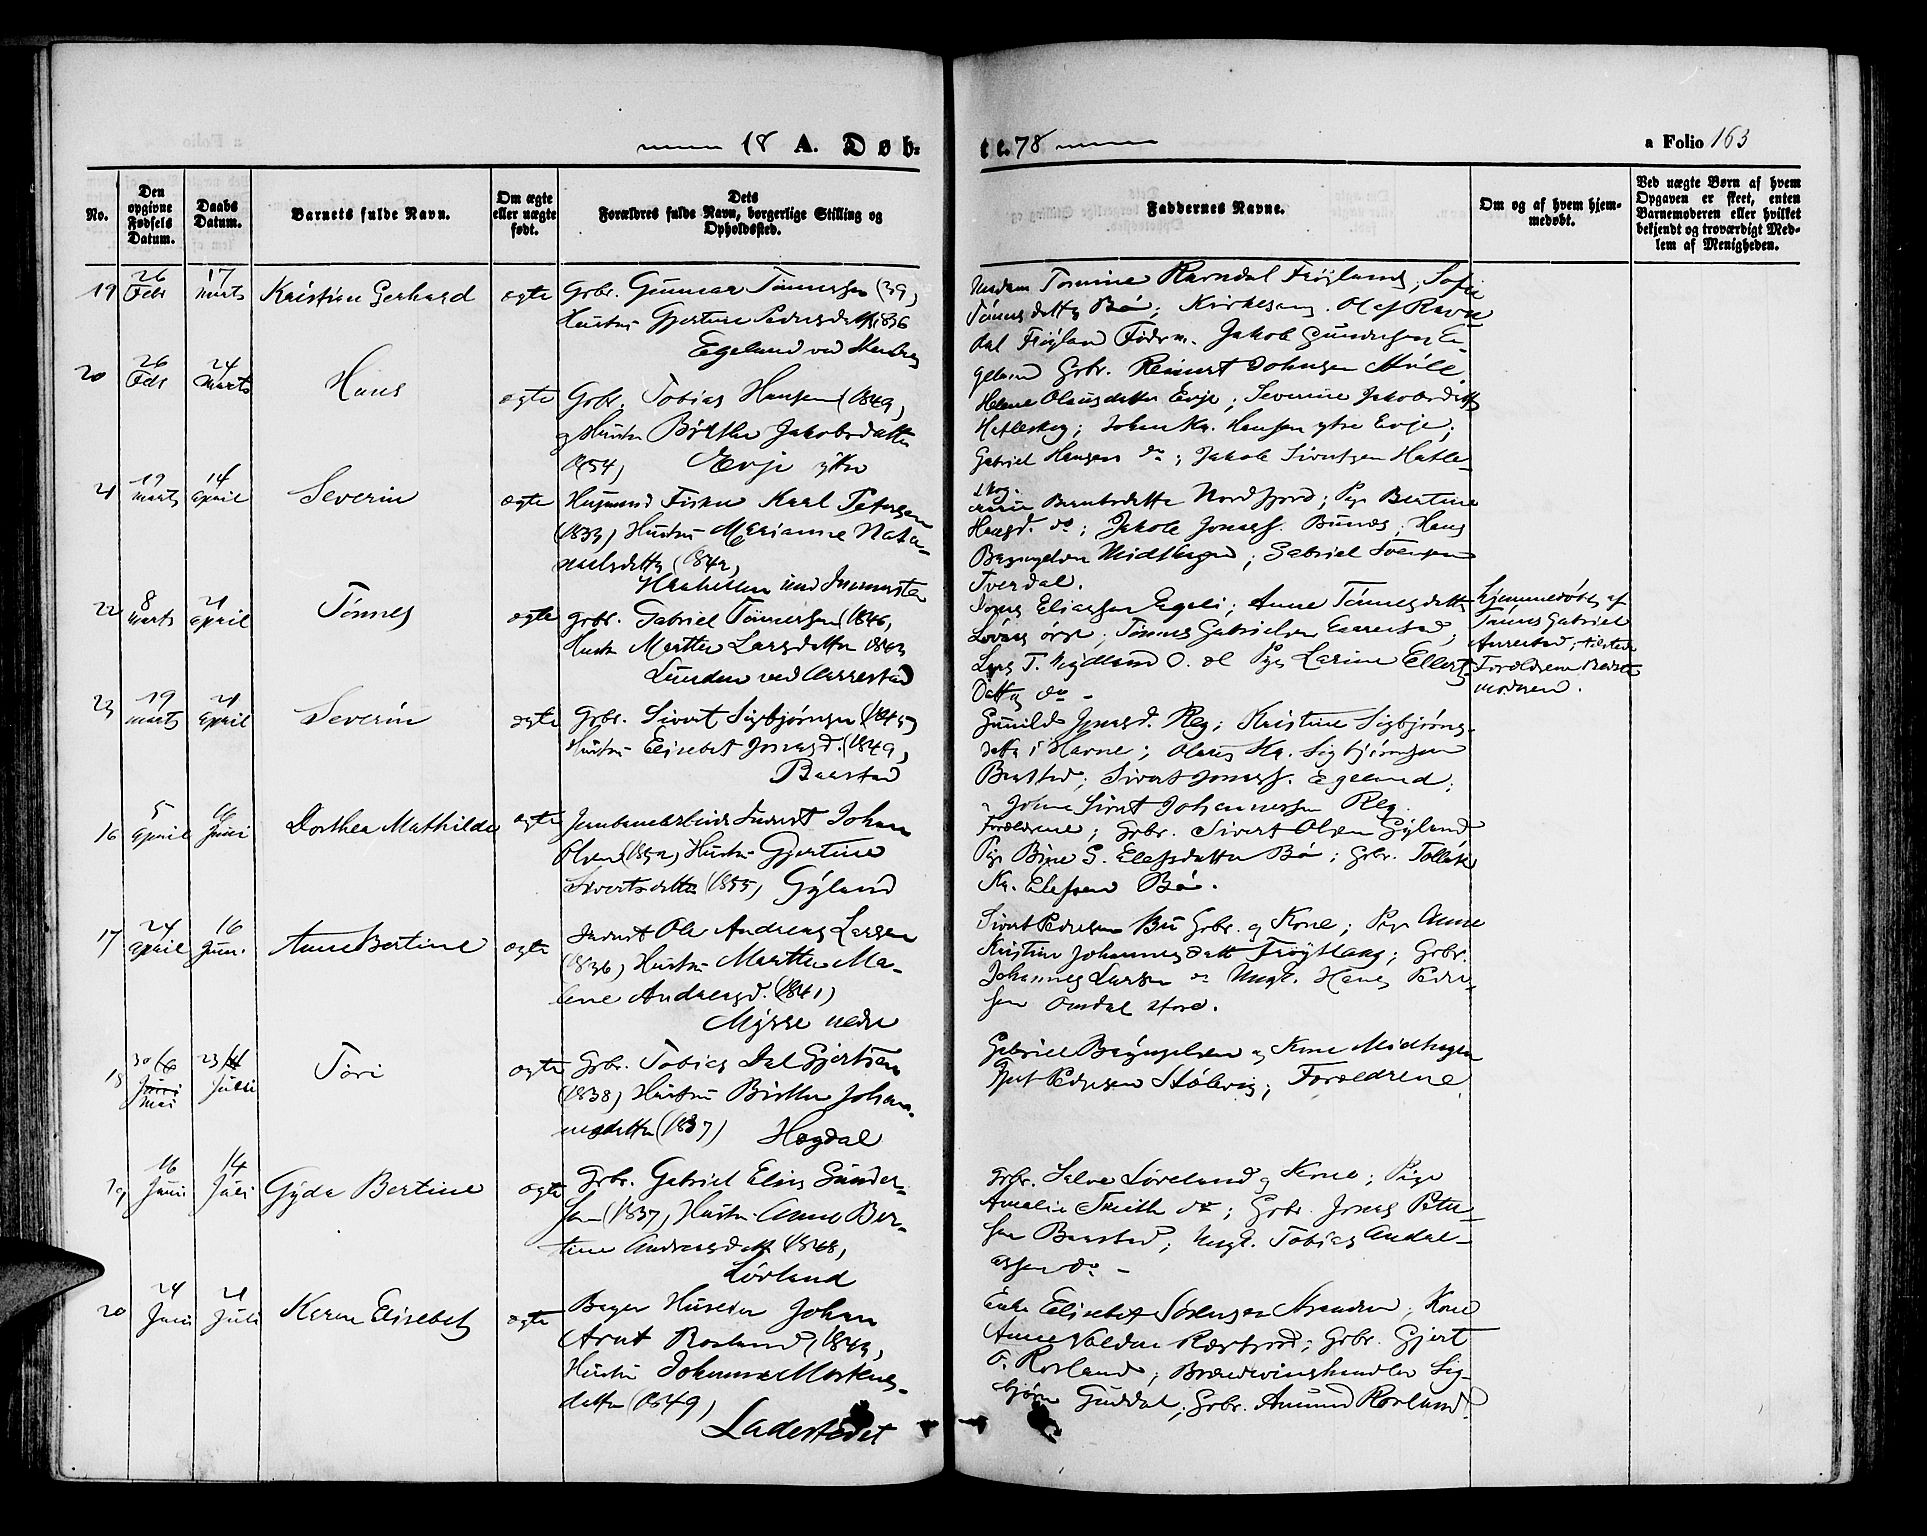 18 A. Døb-
te 78
a Folio 163
No.
Den opgivne Fødsels Datum.
Daabs Datum.
Barnets fulde Navn.
Om ægte eller uægte født.
Dets Forældres fulde Navn, borgerlige Stilling og Opholdssted.
Faddernes Navne.
Om og af hvem hjemmedøbt.
Ved uægte Børn af hvem Opgaven er skeet, enten Barnemoderen eller hvilket bekjendt og troværdigt Medlem af Menigheden.
19 26 Febr 17 Marts Kristian Gerhard ægte Grbr. Gunnar Tønnessen (39,
Hustru Gjertine Pedersdatter 1836
Egeland ved
Madam Tomine Ravndal Frøyland; Sofie
Tønnesdatter Bø; Kirkesang. Olaf Ravn-
dal Frøyland Føderm. Jakob Gundersen E-
geland Grbr. Reinert Johnsen
20 26 Febr 24 Marts Hans ægte Grbr. Tobias Hansen (1849,
og Hustru Børthe Jakobsdatter
1854) Evje ytre
Helene Olausdatter Evje; Severine Jakobsdatter
Hetleskog; Johan Kr. Hansen ytre Evje;
Gabriel Hansen do; Jakob Sivertsen Hetle-
skog.
21 19 Marts 14 April Severin ægte Husmand Fisker Karl Petersen
(1833) Hustru Marianne Nata-
naelsdatter (1842)
Berntsdatter Nordfjord; Pige Bertine
Hansd. do; Jakob Jonass. Hans
Midthagen; Gabriel Svensen
Tverdal.
22 8 Marts 21 April Tønnes ægte Grbr. Gabriel Tønnessen (1846,
Hustr Marthe Larsdatter 1843
Lunden ved Aarrestad
Eliassen Egeli; Anne Tønnesdatter
Tønnes Gabrielsen Aarrestad;
Lars T. Mydland Pige Karine Ellert
Datter do -
Hjemmedøbt af
Tønnes Gabriel
Aarrestad, tilstede
Forældrene Bedste
moderen.
23 19 Marts 21 April Severin ægte Grbr. Sivert Sigbjørnsen (1845)
Hustru Elisebet Jonasd. (1849,
Barstad
Gunild Jonasd. Reg; Kristine Sigbjørns-
datter i Havne; Olaus Kr. Sigbjørnsen
Barstad; Sivert Jonass. Egeland;
Johan Sivert Johannessen Reg.
16 5 April 16 Juni Dorthea Mathilde ægte Jernbanearbeider Inderst Johan
Olsen (1852) Hustru Gjertine
Sivertsdatter (1855) Gyland
Forældrene; Grbr. Sivert Olsen Gyland
Pige Bine S. Elefsdatter Bø; Grbr. Tollak
Kr. Elefsen Bø.
17 24 April 16 Juni. Anne Bertine ægte Inderst Ole Andreas Larsen
(1836) Hustru Marthe Ma-
lene Andreasd. (1841)
Mysse nedre
Sivert Pedersen Bu Grbr. og Kone; Pige Anne
Kristine Johannesdatt Frøytlang; Grbr.
Johannes Larsen og Ungk. Hans Peder-
sen Omdal store.
18 30/6 Mai 23 Juli Tori ægte Grbr. Tobias Dal Gjertsen
(1838) Hustru Birthe Johan-
nesdatter (1837) Hegdal
Gabriel og Kone Midhagen
Gjert Pedersen Stølsvig; Forældrene
19 16 Juni 14 Juli Gyda Bertine ægte Grbr. Gabriel Elias Gunder-
sen (1837, Hustru Anne Ber-
tine Andreasdatt 1848,
Lørland
Grbr. Salve Løreland og Kone; Pige
Amalie Smith do; Grbr. Jonas Peter-
sen Barstad; Ungk. Tobias Andal-
assen do -
20 24 Juni 21 Juli Karen Elisebet ægte Bager Huseier Johan
Arnt Rosland (1843,
Hustru Johanne Mortens-
datter (1849)
Ladestedet
Enke Elisebet Sørensen Stranden; Kone
Anne Valdine Rærfjord; Grbr. Gjert
O. Rosland; Brændevinshandler Sig-
bjørn Guddal; Grbr. Amund Rosland.